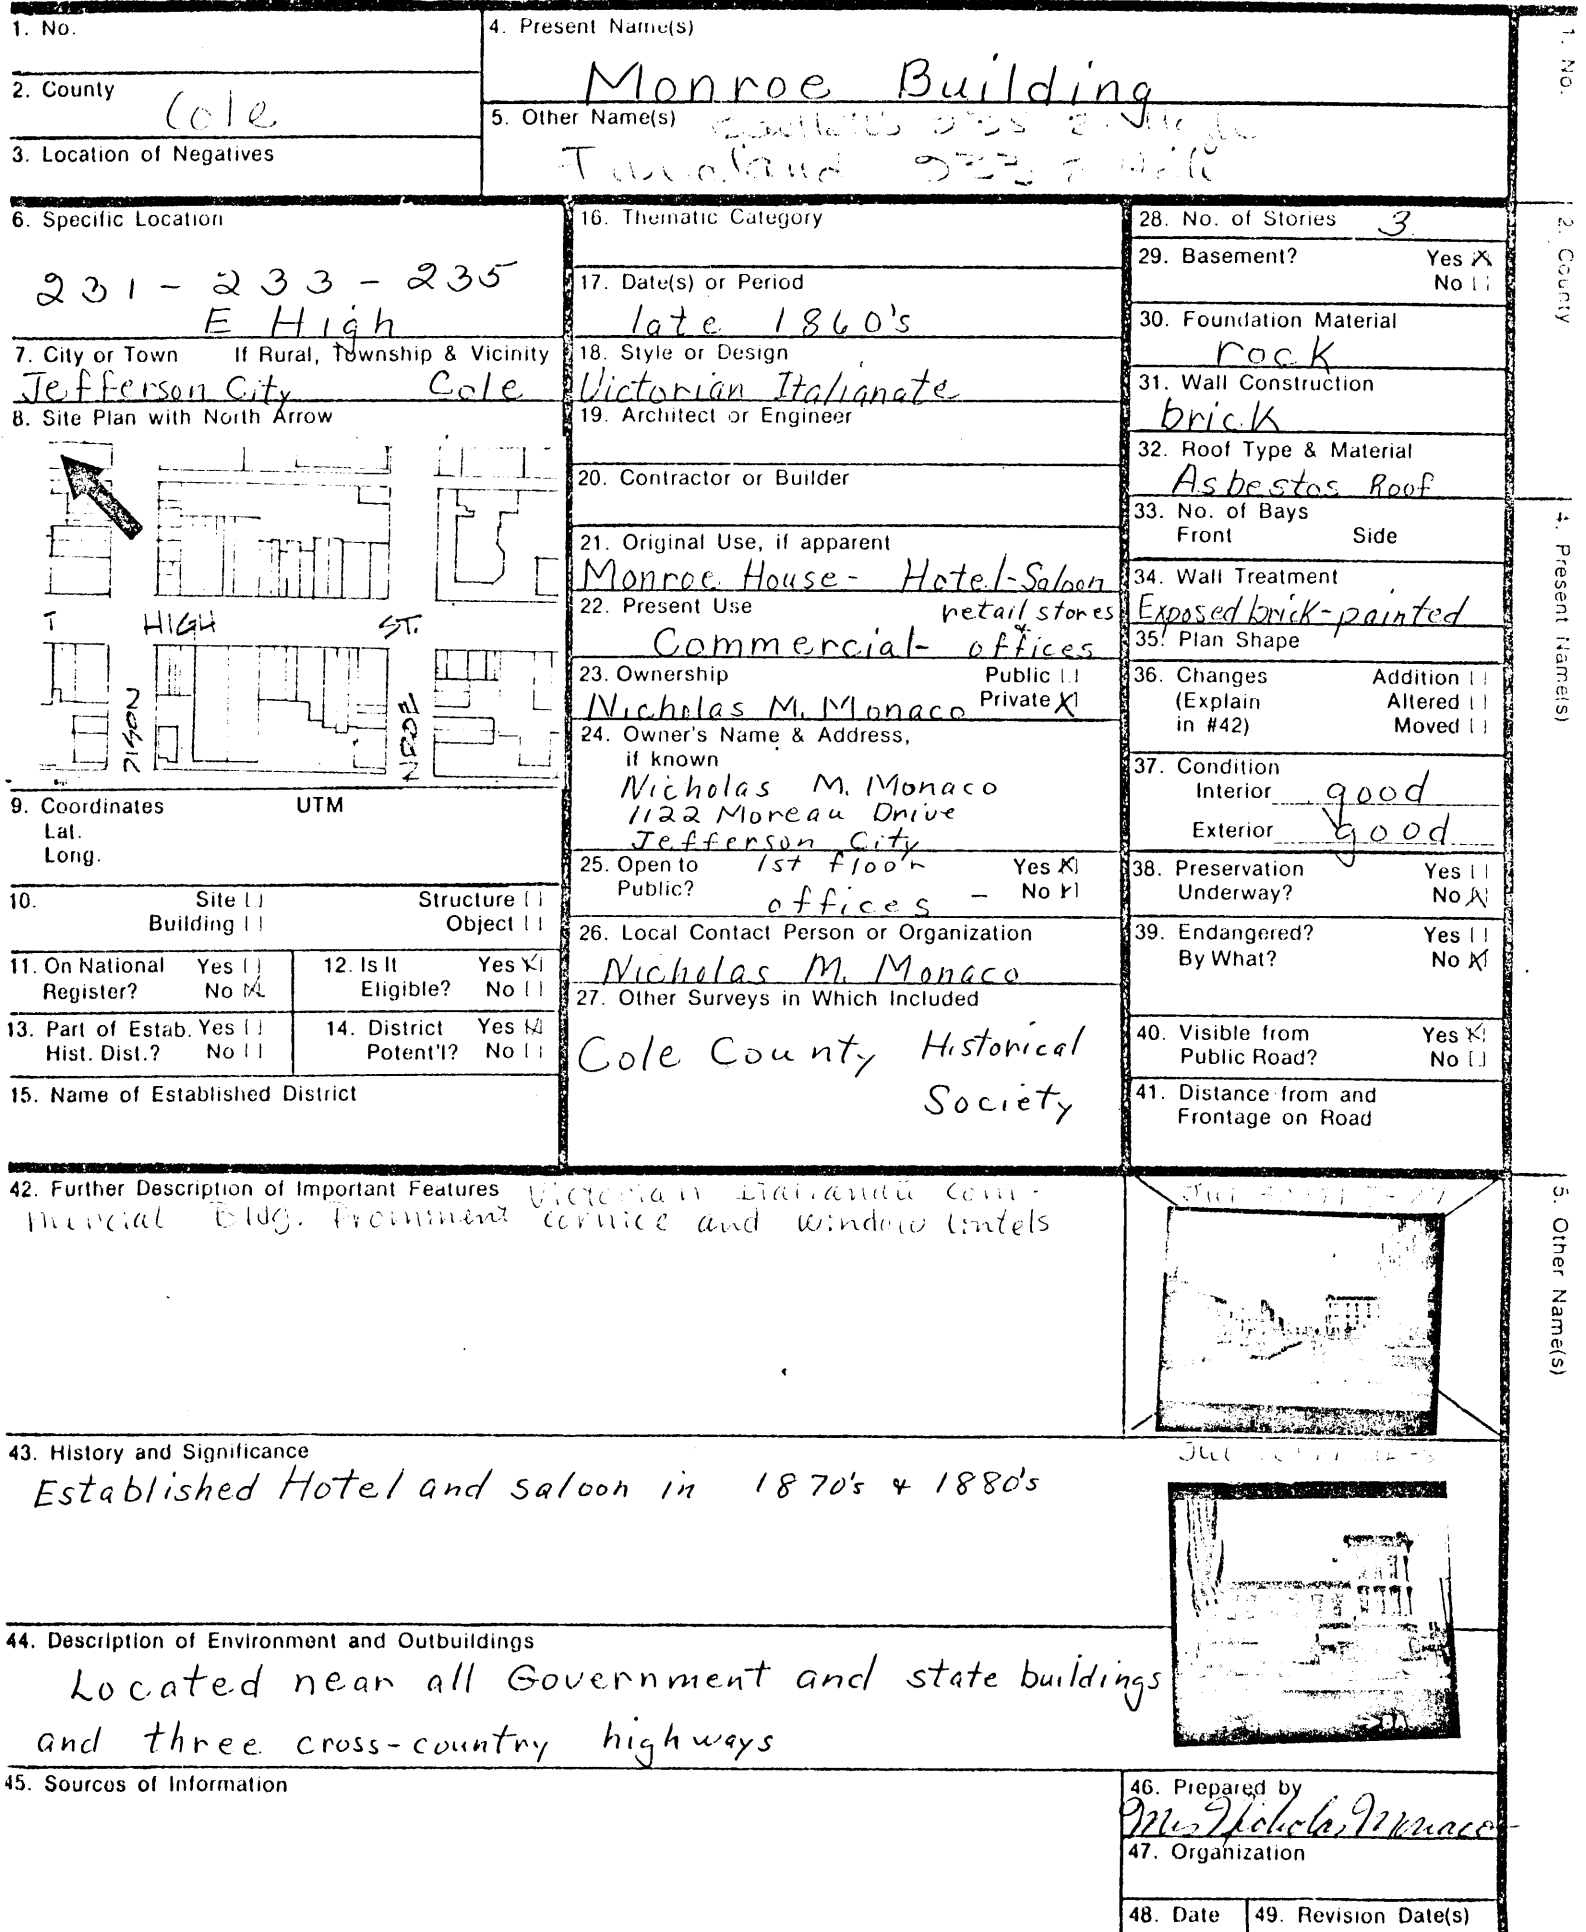 1. No.
2. County
Cole
3. Location of Negatives
4. Present Name(s)
Monroe Building
5. Other Name(s)
6. Specific Location
231 - 233 - 235
E High
7. City or Town If Rural, Township & Vicinity
Jefferson City Cole
8. Site Plan with North Arrow
HIGH ST.
9. Coordinates UTM
Lat.
Long.
10. Site [ ] Structure [ ]
Building [ ] Object [ ]
11. On National Register? Yes [ ] No [X]
12. Is It Eligible? Yes [X] No [ ]
13. Part of Estab. Hist. Dist.? Yes [ ] No [ ]
14. District Potent'l? Yes [X] No [ ]
15. Name of Established District
16. Thematic Category
17. Date(s) or Period
late 1860's
18. Style or Design
Victorian Italianate
19. Architect or Engineer
20. Contractor or Builder
21. Original Use, if apparent
Monroe House - Hotel-Saloon
22. Present Use retail stores
Commercial - & offices
23. Ownership Public [ ]
Nicholas M. Monaco Private [X]
24. Owner's Name & Address,
if known
Nicholas M. Monaco
1122 Moreau Drive
Jefferson City
25. Open to 1st floor Yes [X]
Public? offices - No [X]
26. Local Contact Person or Organization
Nicholas M. Monaco
27. Other Surveys in Which Included
Cole County Historical
Society
28. No. of Stories 3
29. Basement? Yes [X]
No [ ]
30. Foundation Material
rock
31. Wall Construction
brick
32. Roof Type & Material
Asbestos Roof
33. No. of Bays
Front Side
34. Wall Treatment
Exposed brick-painted
35. Plan Shape
36. Changes Addition [ ]
(Explain Altered [ ]
in #42) Moved [ ]
37. Condition
Interior good
Exterior good
38. Preservation Yes [ ]
Underway? No [X]
39. Endangered? Yes [ ]
By What? No [X]
40. Visible from Yes [X]
Public Road? No [ ]
41. Distance from and
Frontage on Road
42. Further Description of Important Features Victorian Italianate Com-
mercial Bldg. Prominent cornice and window lintels
43. History and Significance
Established Hotel and saloon in 1870's & 1880's
44. Description of Environment and Outbuildings
Located near all Government and state buildings
and three cross-country highways
45. Sources of Information
46. Prepared by
Mrs Nicholas Monaco
47. Organization
48. Date 49. Revision Date(s)
1. No.
2. County
4. Present Name(s)
5. Other Name(s)